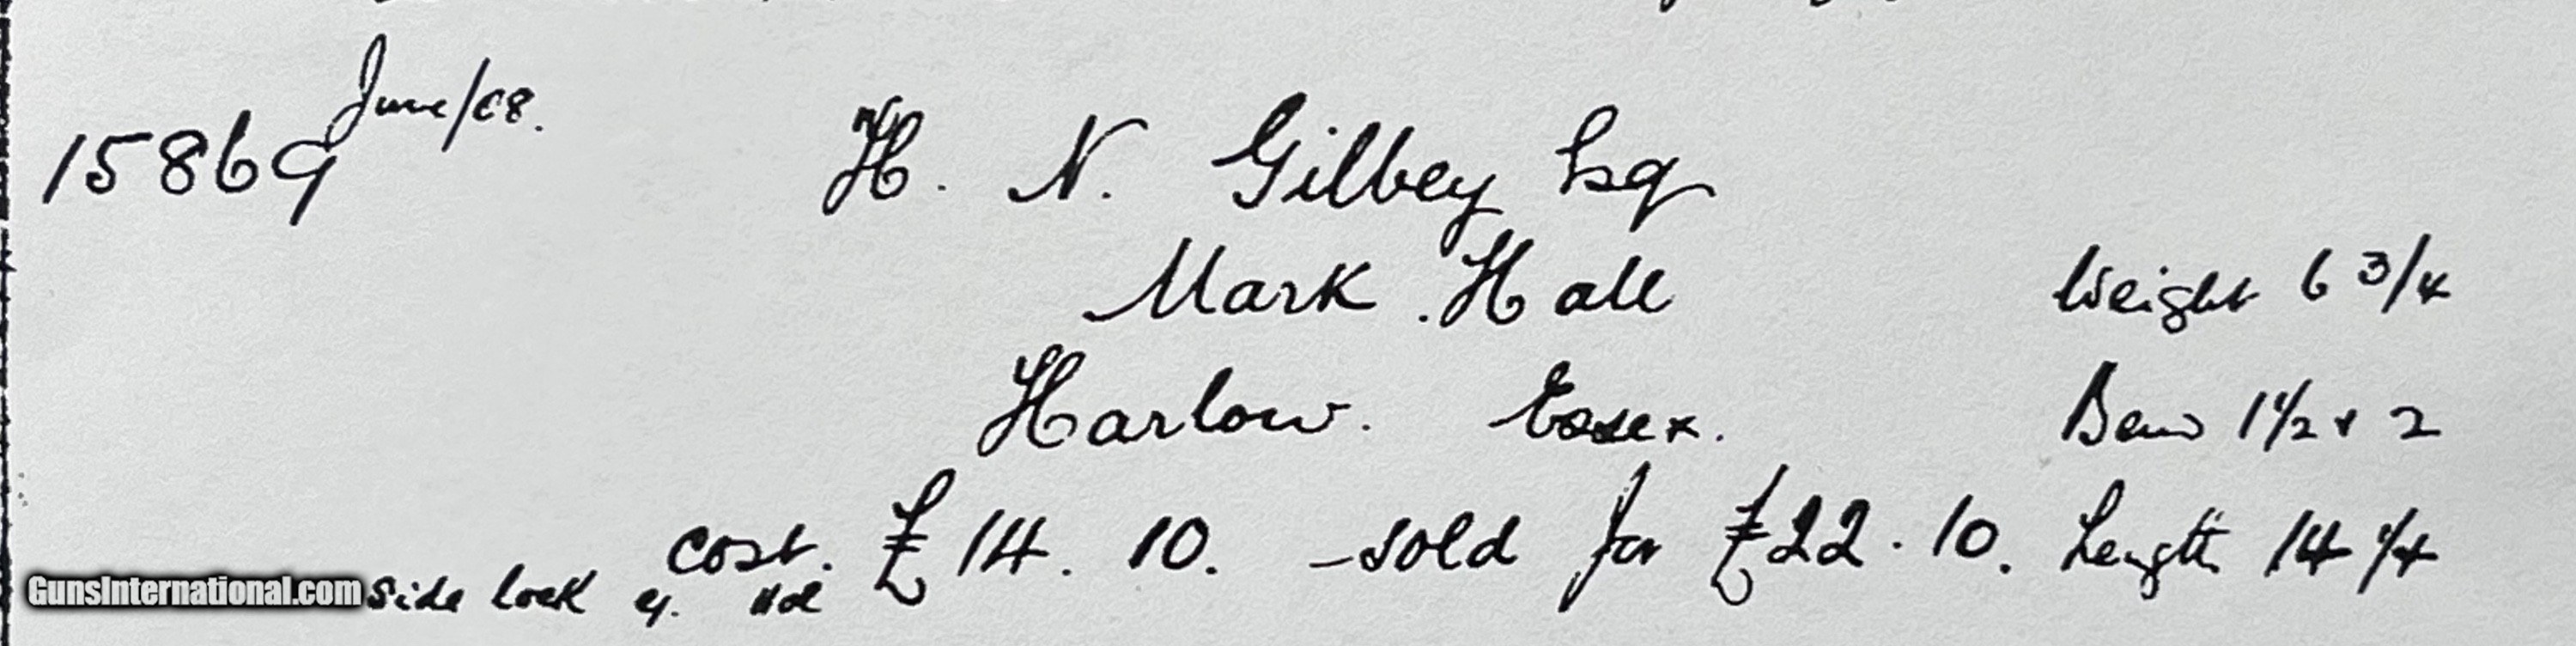 June/08.
15869 H. N. Gilbey Esq
Mark Hall Weight 6 3/4
Harlow. Essex. Bend 1 1/2 x 2
cost. £14. 10. - sold for £22. 10. Length 14 1/4
GunsInternational.com Side lock ej.